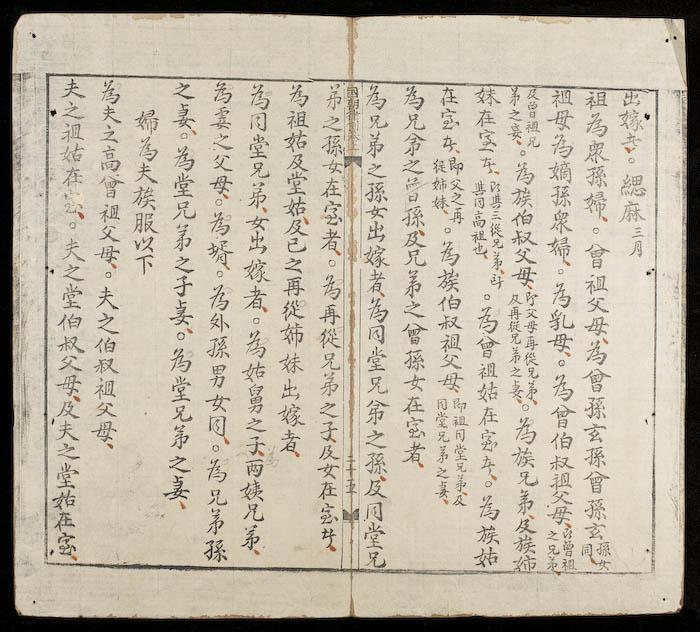 出嫁者。緦麻三月
祖為眾孫婦。曾祖父母、為曾孫玄孫曾孫玄孫女同
祖母為嫡孫眾婦。為乳母。為曾伯叔祖父母、即曾祖之兄弟、
及曾祖兄弟之妻。為族伯叔父母、即父母再從兄弟、及再從兄弟之妻、。為族兄弟及族姉
妹在室者、與三從兄弟共同高祖也。為曾祖姑在室者。為族姑
在室者、即父之再從姉妹、。為族伯叔祖父母、即祖同堂兄弟、及同堂兄弟之妻、
為兄弟之曾孫、及兄弟之曾孫女在室者
為兄弟之孫女出嫁者、為同堂兄弟之孫、及同堂兄
二十五
弟之孫女在室者。為再從兄弟之子及女在室者、
為祖姑及堂姑、及己之再從姉妹出嫁者、
為同堂兄弟、女出嫁者。為姑舅之子、兩姨兄弟、
為妻之父母。為婿。為外孫男女同。為兄弟孫
之妻。為堂兄弟之子妻。為堂兄弟之妻、
婦為夫族服以下
為夫之高曾祖父母、。夫之伯叔祖父母、
夫之祖姑在室。夫之堂伯叔父母、及夫之堂姑在室、